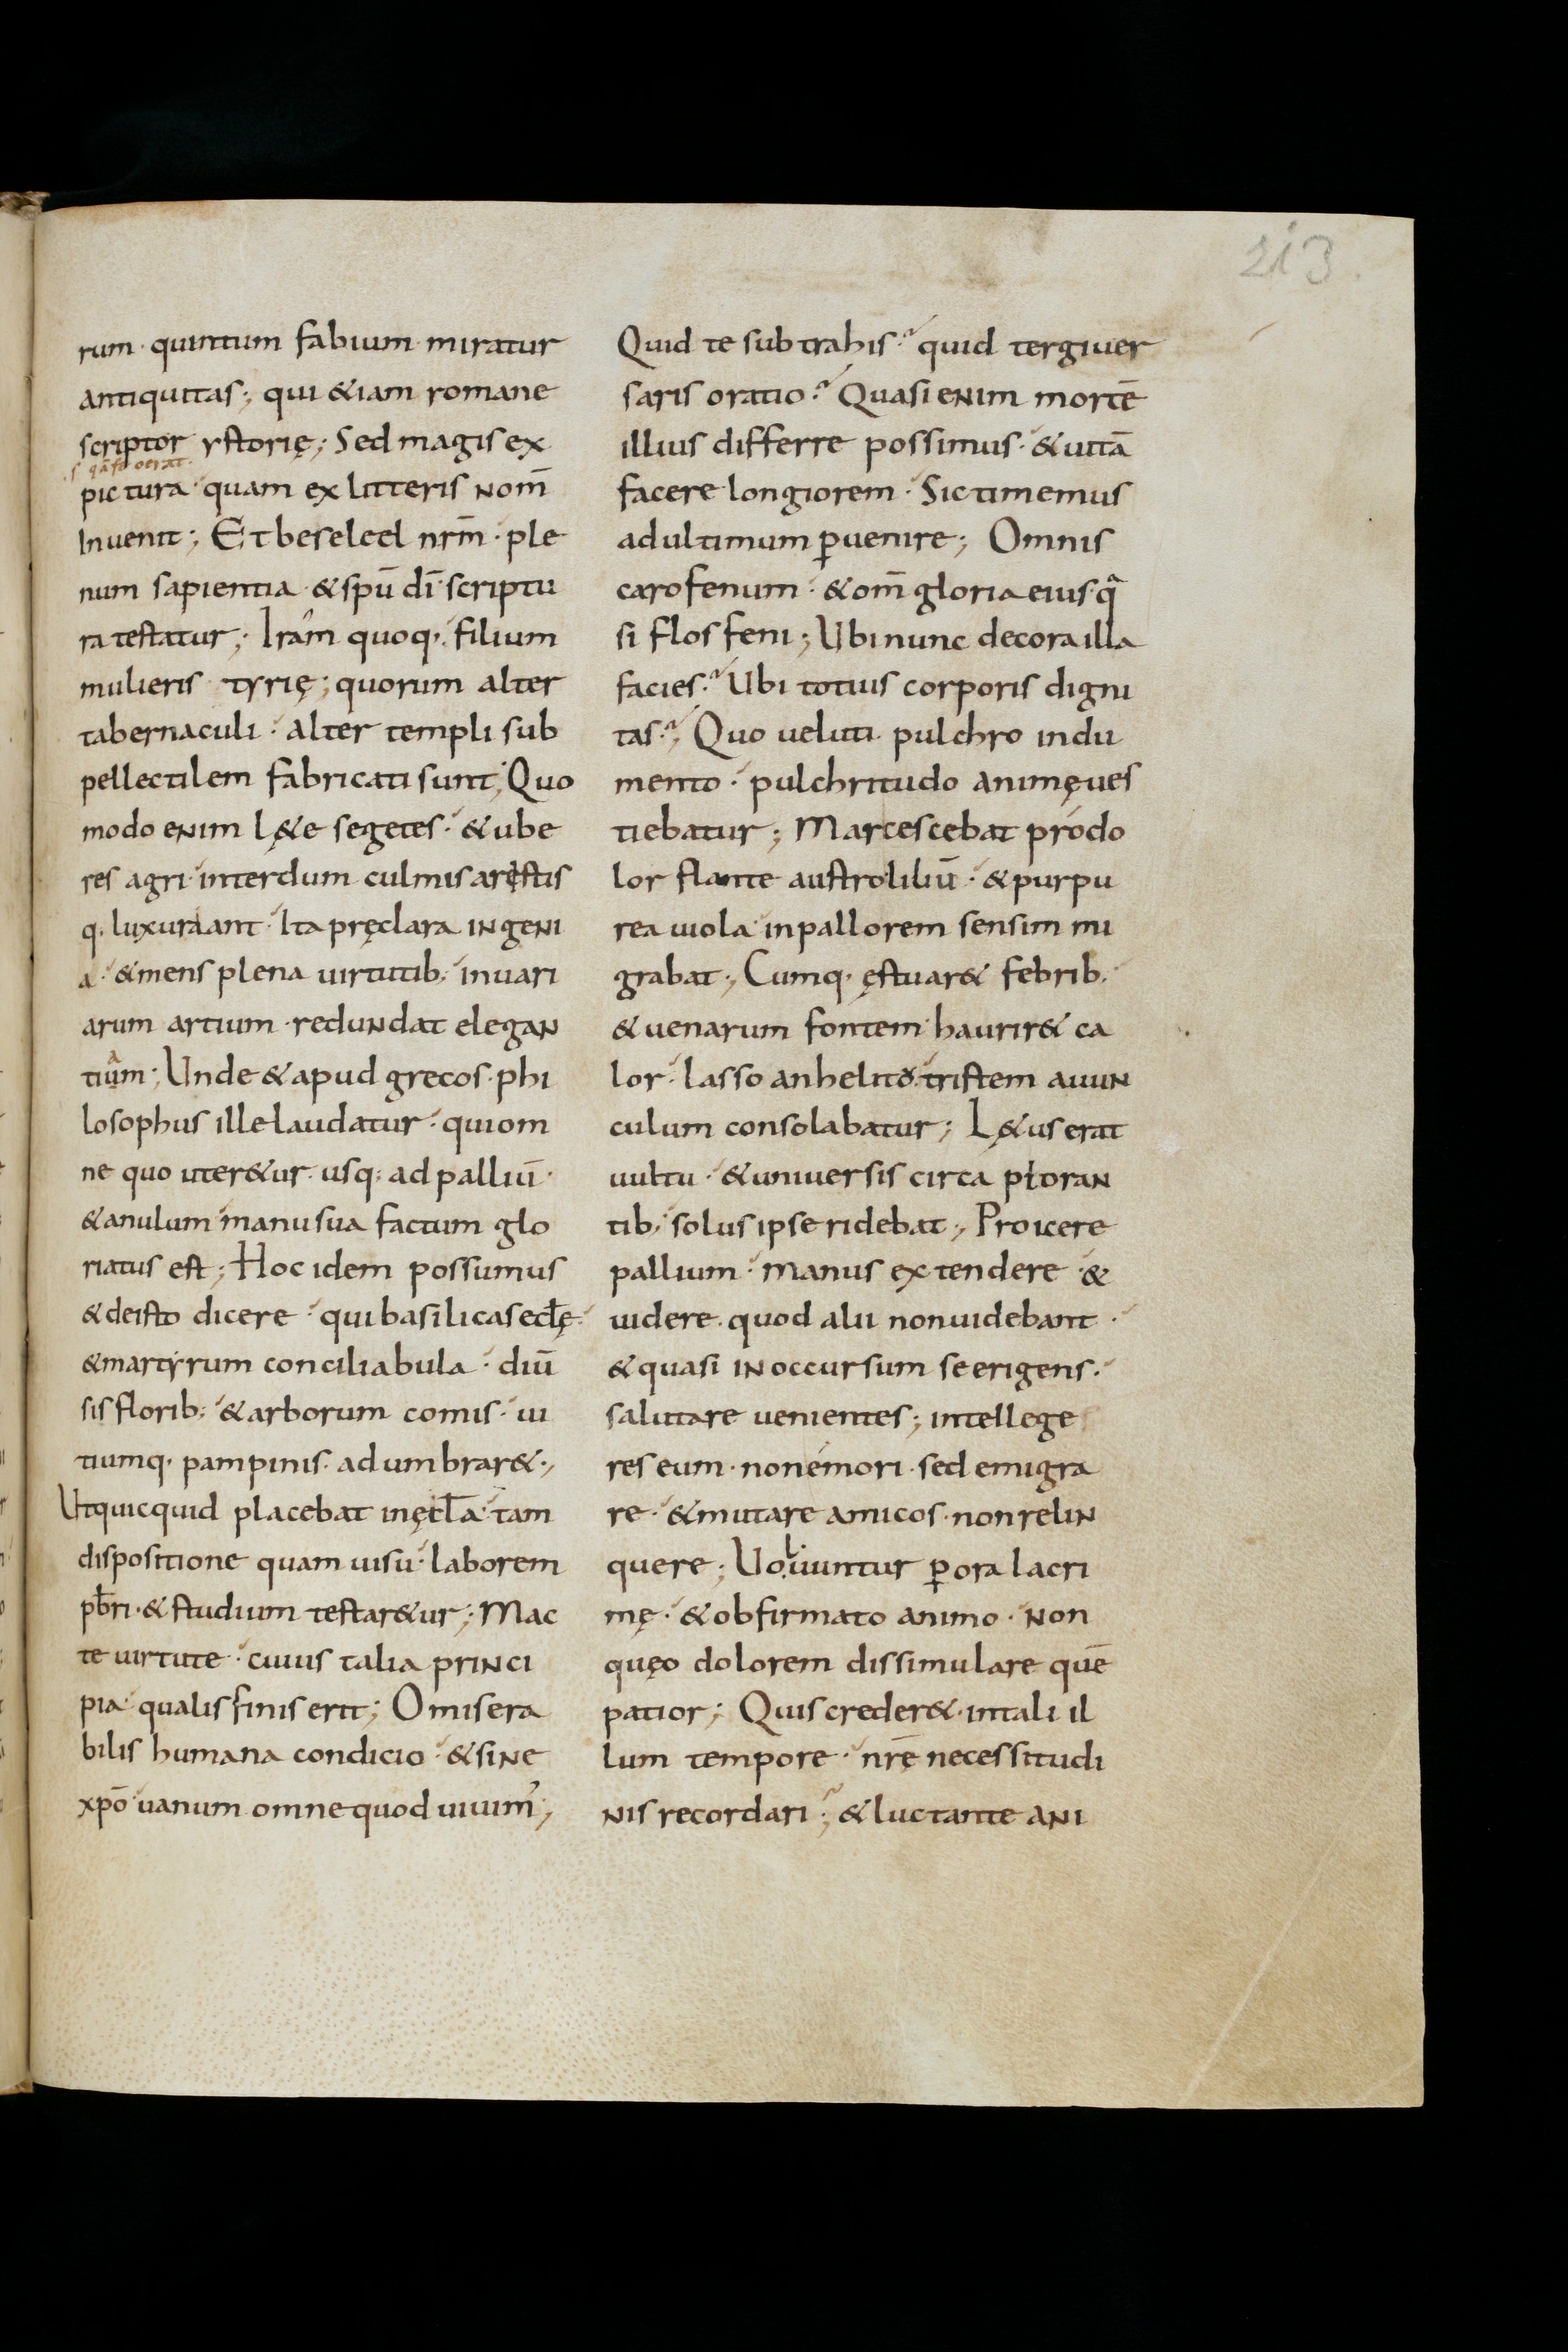 213
rum · quintum fabium · miratur
antiquitas; qui &iam romane
scriptor ystorię; Sed magis ex
pictura · quam ex litteris nom̄
Invenit; Et beseleel nr̄m · ple
num sapientia · & spū dī scriptu
ra testatur; Iram quoq; filium
mulieris tyrię; quorum alter
tabernaculi · alter templi sub
pellectilem fabricati sunt; Quo
modo enim lę&e segetes · & ube
res agri interdum culmis aristis
q; luxuriant · Ita pręclara ingeni
a · & mens plena uirtutib; in uari
arum artium · redundat elegan
tiam; Unde & apud grecos · phi
losophus ille laudatur · qui om
ne quo uter&ur · usq; ad palliū ·
& anulum manu sua factum glo
riatus est; Hoc idem possumus
& de isto dicere · qui basilicas eccl̄ę ·
& martyrum conciliabula · diū
sis florib; & arborum comis · ui
tiumq; pampinis · adumbrar& ·,
Ut quicquid placebat in ęccl̄a · tam
dispositione quam uisu · laborem
pb̄ri · & studium testar&ur; Mac
te uirtute · cuius talia princi
pia · qualis finis erit; O misera
bilis humana condicio · & sine
xp̄o uanum omne quod uiuim̓;
Quid te subtrahis? quid tergiuer
saris oratio? Quasi enim mortē
illius differre possimus · & uitā
facere longiorem · Sic timemus
ad ultimum ꝑuenire; Omnis
caro fenum · & om̄ gloria eius qͣ
si flos feni; Ubi nunc decora illa
facies? Ubi totius corporis digni
tas? Quo ueluti pulchro indu
mento · pulchritudo animę ues
tiebatur; Marcescebat pro do
lor flante austro liliū · & purpu
rea uiola in pallorem sensim mi
grabat; Cumq; ęstuar& febrib;
& uenarum fontem haurir& ca
lor · lasso anhelito · tristem auun
culum consolabatur; Lę&us erat
uultu · & uniuersis circa ploran
tib; solus ipse ridebat; Proicere
pallium · manus extendere · &
uidere · quod alii non uidebant ·
& quasi in occursum se erigens ·
salutare uenientes; intellege
res eum · non emori · sed emigra
re · & mutare amicos · non relin
quere; Uoluuntur ꝑ ora lacri
mę · & obfirmato animo · non
quęo dolorem dissimulare quē
patior; Quis creder& · in tali il
lum tempore · nr̄ę necessitudi
nis recordari; & luctante ani